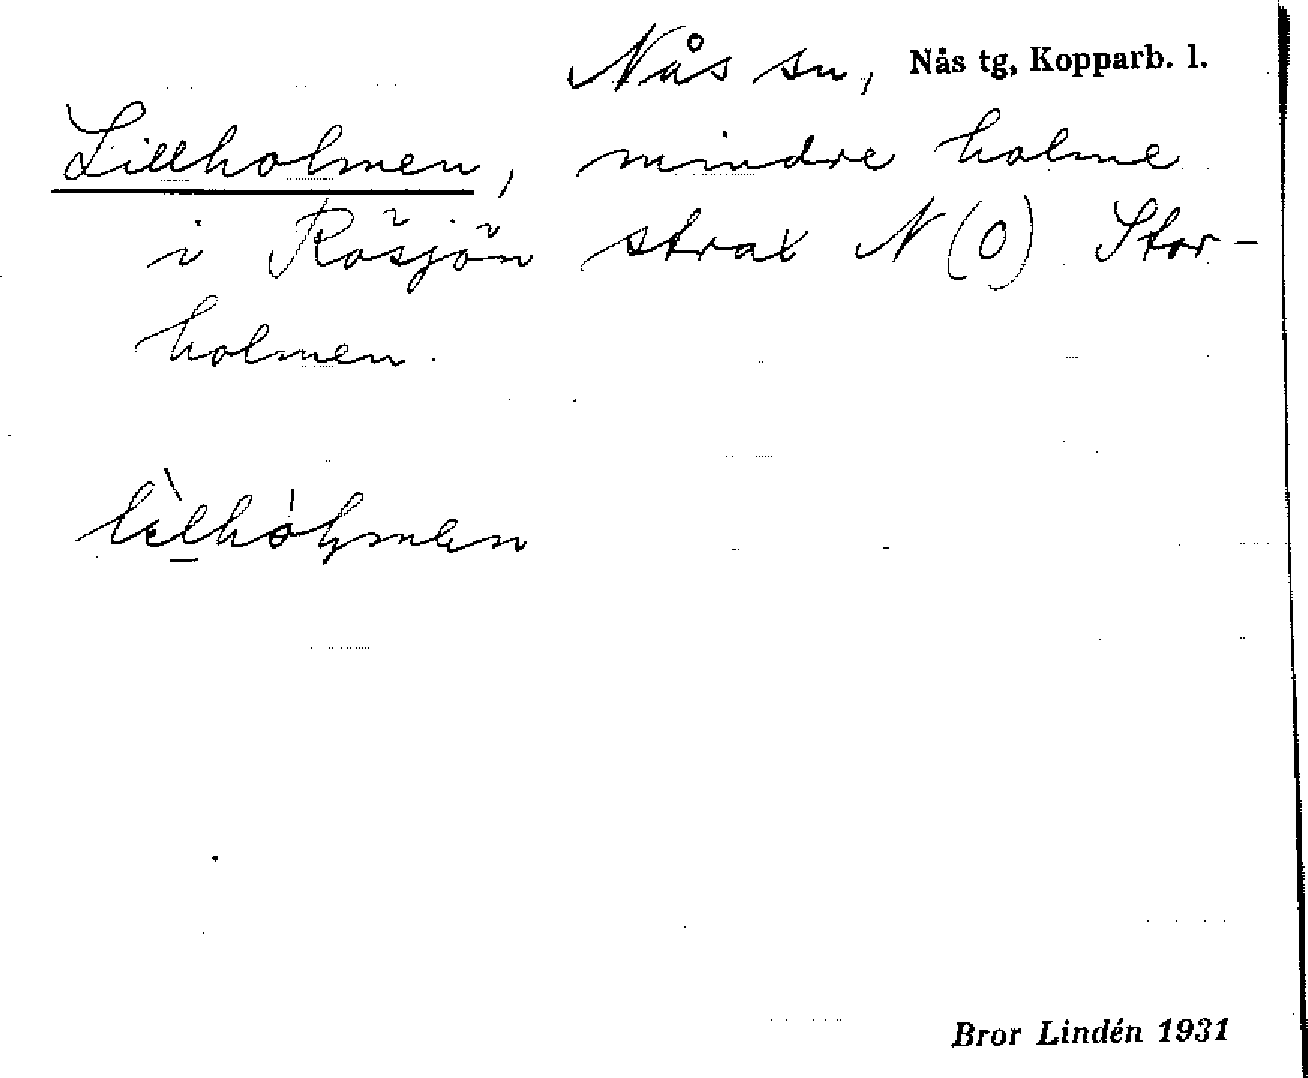 Nås sn, Nås tg, Kopparb. l.
Lillholmen, mindre holme
i Rösjön strax N (O) Stor-
holmen.
Bror Lindén 1931